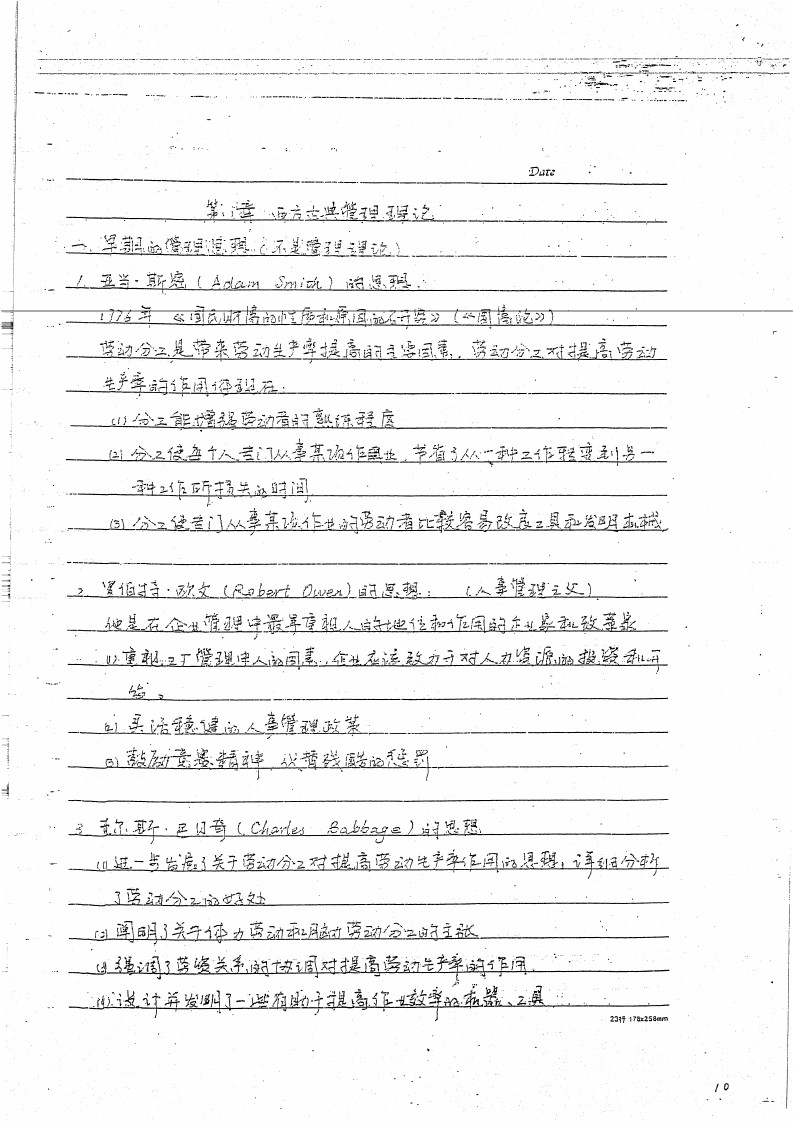 Date
第1章 西方古典管理理论
一、早期的管理思想（不是管理理论）
1. 亚当·斯密（Adam Smith）的思想：
1776年 《国民财富的性质和原因的研究》（《国富论》）
劳动分工是带来劳动生产率提高的主要因素，劳动分工对提高劳动
生产率的作用体现在：
(1) 分工能增强劳动者的熟练程度
(2) 分工使每个人专门从事某项作业，节省了从一种工作转变到另一
种工作所损失的时间
(3) 分工使专门从事某项作业的劳动者比较容易改良工具和发明机械
2. 罗伯特·欧文（Robert Owen）的思想：（人事管理之父）
他是在企业管理中最早重视人的地位和作用的企业家和改革家
(1) 重视工厂管理中人的因素，企业应该致力于对人力资源的投资和开
发。
(2) 灵活稳健的人事管理政策
(3) 鼓励竞赛精神，代替残酷的惩罚
3. 查尔斯·巴贝奇（Charles Babbage）的思想
(1) 进一步发展了关于劳动分工对提高劳动生产率作用的思想，详细分析
了劳动分工的好处
(2) 阐明了关于体力劳动和脑力劳动分工的主张
(3) 强调了劳资关系的协调对提高劳动生产率的作用
(4) 设计并发明了一些有助于提高作业效率的机器、工具
23行 178x258mm
10